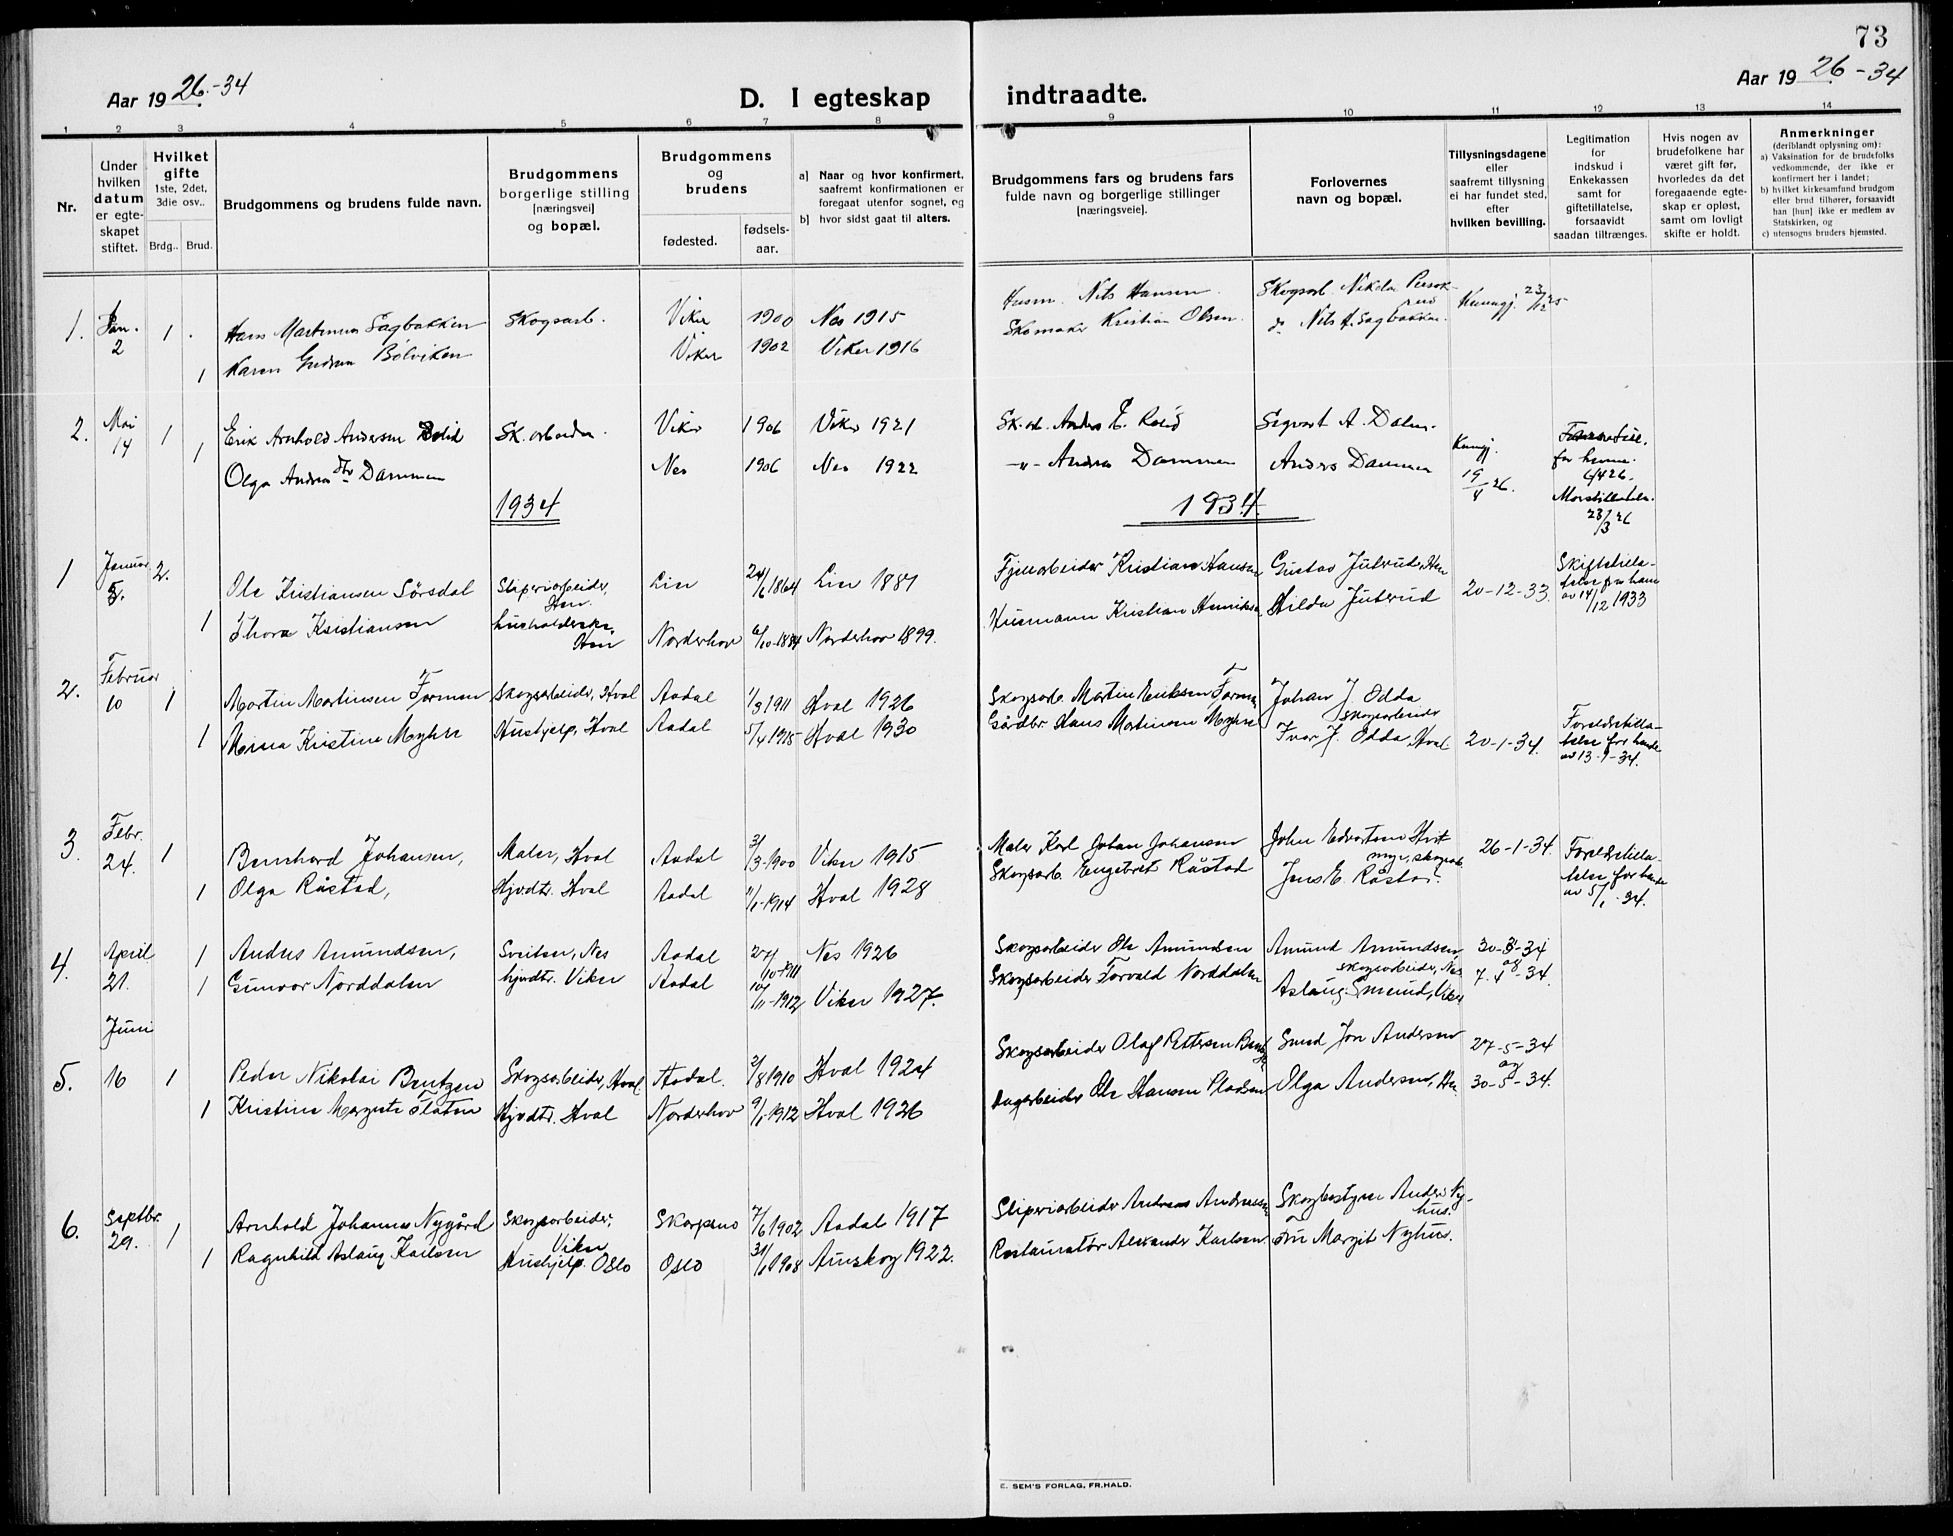 73
Aar 1926.-34
D. I egteskap
indtraadte.
Aar 1926-34
1 2 3 4 5 6 7 8 9 10 11 12 13 14
Nr.
Under hvilken datum er egte-skapet stiftet.
Hvilket gifte 1ste, 2det, 3die osv..
Brdg.. Brud.
Brudgommens og brudens fulde navn.
Brudgommens borgerlige stilling [næringsvei] og bopæl.
Brudgommens og brudens
fødested.
fødsels-aar.
a] Naar og hvor konfirmert, saafremt konfirmationen er foregaat utenfor sognet, og
b] hvor sidst gaat til alters.
Brudgommens fars og brudens fars fulde navn og borgerlige stillinger [næringsveie].
Forlovernes navn og bopæl.
Tillysningsdagene eller saafremt tillysning ei har fundet sted, efter hvilken bevilling.
Legitimation for indskud i Enkekassen samt for giftetillatelse, forsaavidt saadan tiltrænges.
Hvis nogen av brudefolkene har været gift før, hvorledes da det foregaaende egte-skap er opløst, samt om lovligt skifte er holdt.
Anmerkninger (deriblandt oplysning om):
a) Vaksination for de brudefolks vedkommende, der ikke er konfirmert her i landet;
b) hvilket kirkesamfund brudgom eller brud tilhører, forsaavidt han [hun] ikke er medlem av Statskirken, og
c) utensogns bruders hjemsted.
1. Jan. 2 1 Hans Martinius Sagbakken Skogsarb. Viker 1900 Nes 1915 Husm. Nils Hansen Skogsarb. Nikolai
1 Karen Gudrun Bølviken Viker 1902 Viker 1916 Skomaker Kristian Olsen. do Nils H. Sagbakken Kunngj. 23/12 25
2. Mai 14 1 Erik Arnhold Andersen Sk. arbeider Viker 1906 Viker 1921 Sk. arb. Anders E. Sigvart A. Dalen.
1 Olga Andreasdtr Dammen Nes 1906 Nes 1922 -"- Andreas Dammen Anders Dammen Kungj. 19/4 26. for henne. 6/4 26. 23/3 26
1934 1934.
1 Januar 5. 2. Ole Kristiansen Sørsdal Sliperiarbeider, Hen. Lier 24/6 1864 Lier 1881 Kristian Hansen Gustav Juterud, Hen
1 Thora Kristiansen husholderske, Hen Norderhov 6/10-1884 Norderhov 1899. Husmann Kristian Henriksen Hilda Juterud 20-12-33. Skiftetilla-telse fra ham av 14/12 1933
2. Februar 10 1 Martin Martinsen Formoen Skogsarbeider, Hval Aadal 1/3 1911 Hval 1926 Skogsarb. Martin Eriksen Formoen Johan J. Odda skogsarbeider
1 Maria Kristine Myhre Hushjelp, Hval Aadal 5/4 1915 Hval 1930 Gårdbr. Hans Martinsen Myhre Ivar J. Odda, Hval 20-1-34. Foreldretilla-telse for bende av 13-1-34.
3. Febr. 24. 1 Bernhard Johansen, Maler, Hval Aadal 3/3-1900 Viker 1915 Maler Karl Johan Johansen John Edvartsen
1 Olga Råstad, Hjvdtr. Hval Aadal 1/1-1914 Hval 1928 Skogsarb. Engebret Råstad Jens E. Råstad. 26-1-34. Foreldretilla-telse for bende av 5/1-34.
4. April 21. 1 Anders Amundsen, Sveitser, Nes Aadal 27/10-1911 Nes 1926 Skogsarbeider Ole Amundsen Amund Amundsen, skogsarbeider, Nes 30-3-34 og
1 Gunvor Norddalen hjvdtr. Viker Aadal 10/11-1912 Viker 1927. Skogsarbeider Torvald Norddalen Aslaug Smerud, Viker 7-4-34.
Juni
5. 16 1 Peder Nikolai Bentzen Skogsarbeider, Hval Aadal. 2/8 1910 Hval 1924 Skogsarbeider Olaf Pettersen Smed Jon Andersen 27-5-34 og
1 Kristine Margrete Flaten Hjvdtr. Hval Norderhov 9/1-1912 Hval 1926 Ole Hansen Pladsen Olga Andersen, 30-5-34.
6. Septbr. 29. 1 Arnhold Johannes Nygård Skogsarbeider, Viker Skarpsno 7/6 1902 Aadal 1917 Sliperiarbeider Andreas Andreassen Skogbestyrer Anders Ny-hus.
1 Ragnhild Aslaug Karlsen Hushjelp. Oslo Oslo 1908 Aurskog 1922. Restauratør Alexander Karlsen. Fru Margit Nyhus.
E. SEM'S FORLAG, FR.HALD.